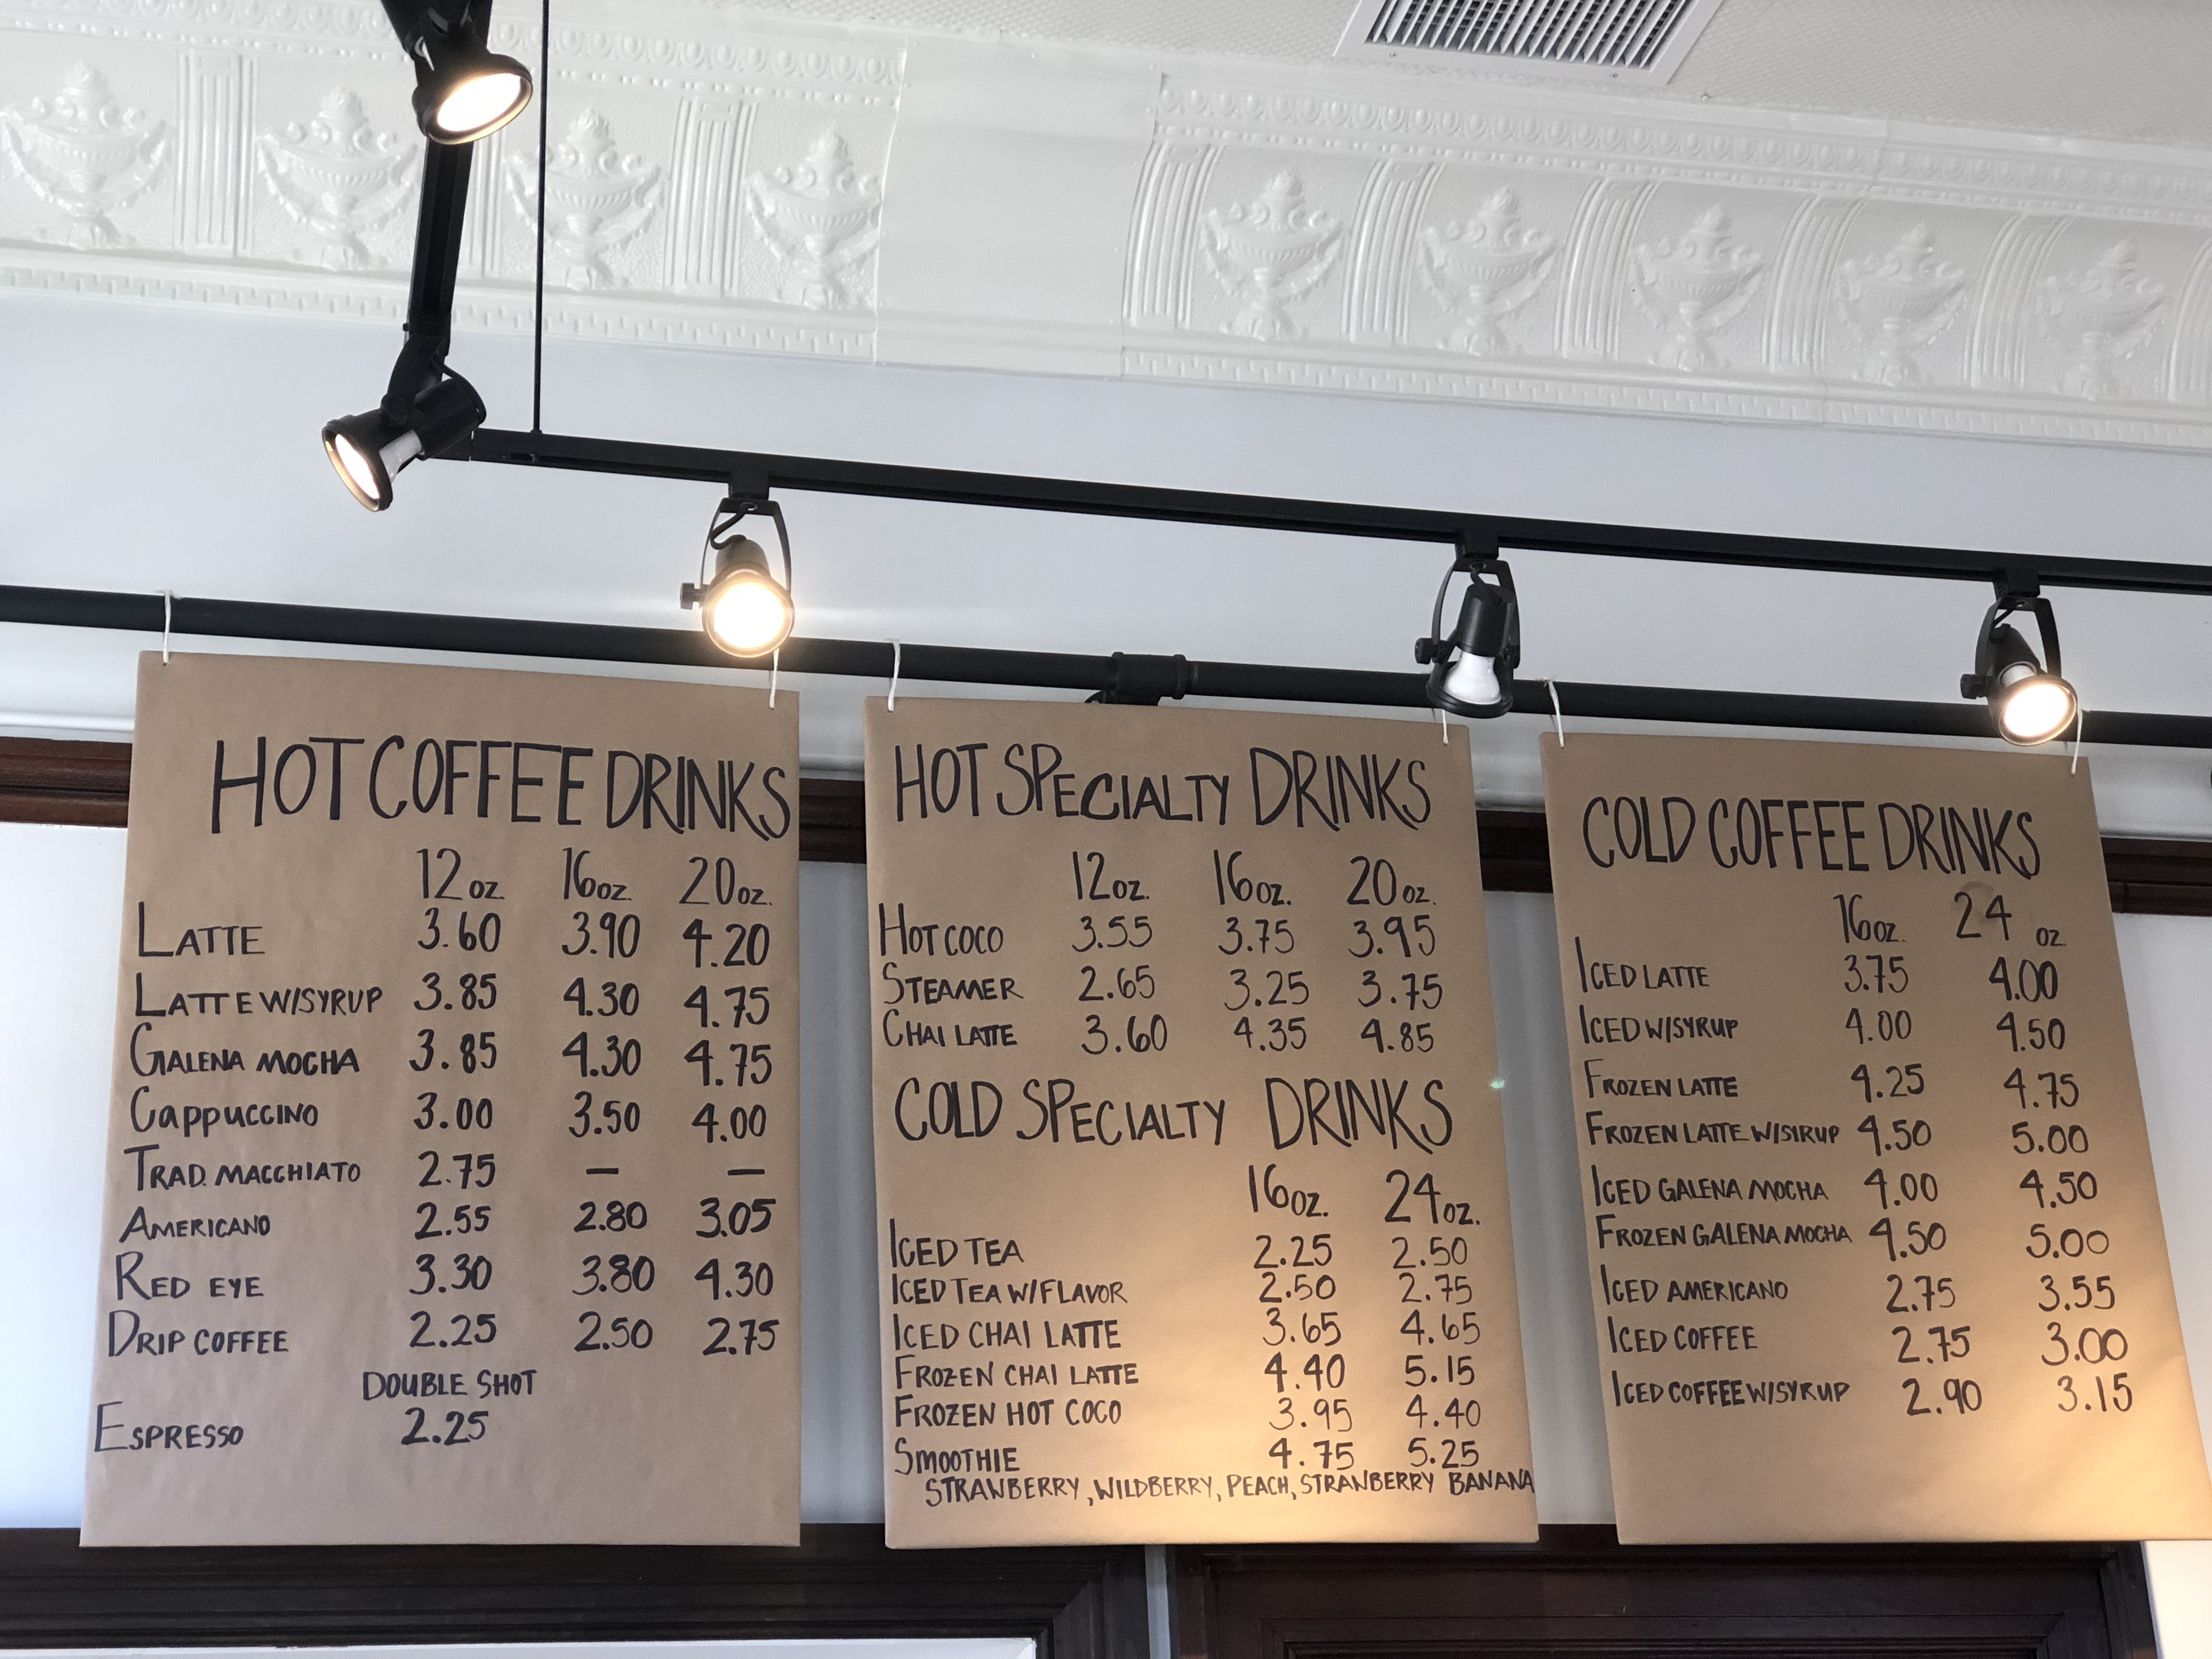 HOT COFFEE DRINKS
12 oz. 16 oz. 20 oz.
LATTE 3.60 3.90 4.20
LATTE W/SYRUP 3.85 4.30 4.75
GALENA MOCHA 3.85 4.30 4.75
CAPPUCCINO 3.00 3.50 4.00
TRAD. MACCHIATO 2.75 — —
AMERICANO 2.55 2.80 3.05
RED EYE 3.30 3.80 4.30
DRIP COFFEE 2.25 2.50 2.75
DOUBLE SHOT
ESPRESSO 2.25
HOT SPECIALTY DRINKS
12 oz. 16 oz. 20 oz.
HOT COCO 3.55 3.75 3.95
STEAMER 2.65 3.25 3.75
CHAI LATTE 3.60 4.35 4.85
COLD SPECIALTY DRINKS
16 oz. 24 oz.
ICED TEA 2.25 2.50
ICED TEA W/FLAVOR 2.50 2.75
ICED CHAI LATTE 3.65 4.65
FROZEN CHAI LATTE 4.40 5.15
FROZEN HOT COCO 3.95 4.40
SMOOTHIE 4.75 5.25
STRAWBERRY, WILDBERRY, PEACH, STRAWBERRY BANANA
COLD COFFEE DRINKS
16 oz. 24 oz
ICED LATTE 3.75 4.00
ICED W/SYRUP 4.00 4.50
FROZEN LATTE 4.25 4.75
FROZEN LATTE W/SYRUP 4.50 5.00
ICED GALENA MOCHA 4.00 4.50
FROZEN GALENA MOCHA 4.50 5.00
ICED AMERICANO 2.75 3.55
ICED COFFEE 2.75 3.00
ICED COFFEE W/SYRUP 2.90 3.15